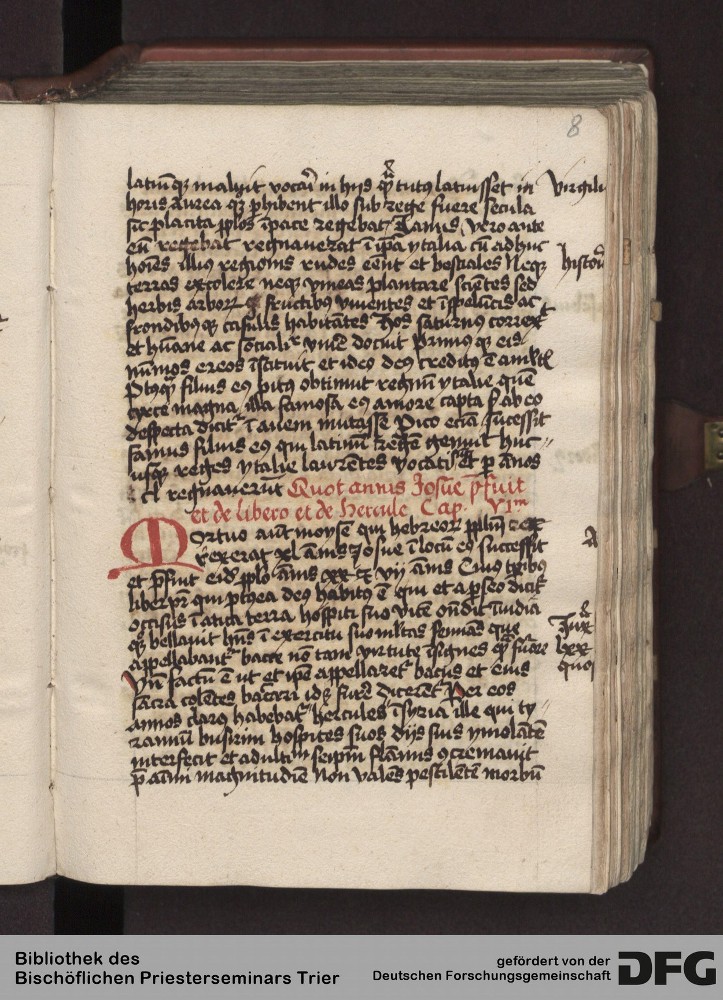 8
latiūq; maluit vocari in hijs qr tutus latuisset in
horis Aurea q; phibent illo sub rege fuere secula
sic placita pplos ī pace regebat Janus vero ante
eū regebat regnauerat ī ipa ytalia cū adhuc
hoīes illius regionis rudes eēnt et bestiales Neq;
terras excolere neq; vineas plantare scientes sed
herbis arborꝝ fructibus viuentes et ī speluncis ac
frondibus q; casulis habitātes Hos saturnus correxit
et hūane ac socialiter viuere docuit Primus q; eis
nūmos ereos īstituit et ideo deus creditus ē
filius eius picus obtinuit regnū ytalie quē
cyrce magna illa famosa eius amore capta et ab eo
despecta dicitur ī auem mutasse Pico eciā successit
faunus filius eius qui latinū regē genuit huc
usq; reges ytalie laurētes vocati st et p ānos
cl regnauerūt Quot annis Josue pfuit
et de libero et de hercule Cap. VIm
Mortuo aūt moyse qui hebreorꝝ pplm
rexerat xl ānis Josue ī locū eius successit
et pfuit eid pplo ānis xx et vij ānis Cuius tpribus
liber pr qui ptea deus habitus ē qui et a pseo dicitur
occisus ī atica terra hospiti suo vitē ondit ī india
q; bellauit hns ī exercitu suo multas feminas que
appellabantur bacce nō tam virtute īsignes q; furore
Vn factū ē ut et ipe appellaretur bacus et eius
sacra colētes bacari idē furere dicerent Per eos
annos clarus habebatur hercules ī syria ille qui ty-
rannū busirim hospites suos dijs suis ymolātē
interfecit et adultim seipm flāmis cremauit
p aīmi magnitudinē non valēs pestilentē morbū
Virgili
histori
A
Bibliothek des
Bischöflichen Priesterseminars Trier
gefördert von der
Deutschen Forschungsgemeinschaft
DFG